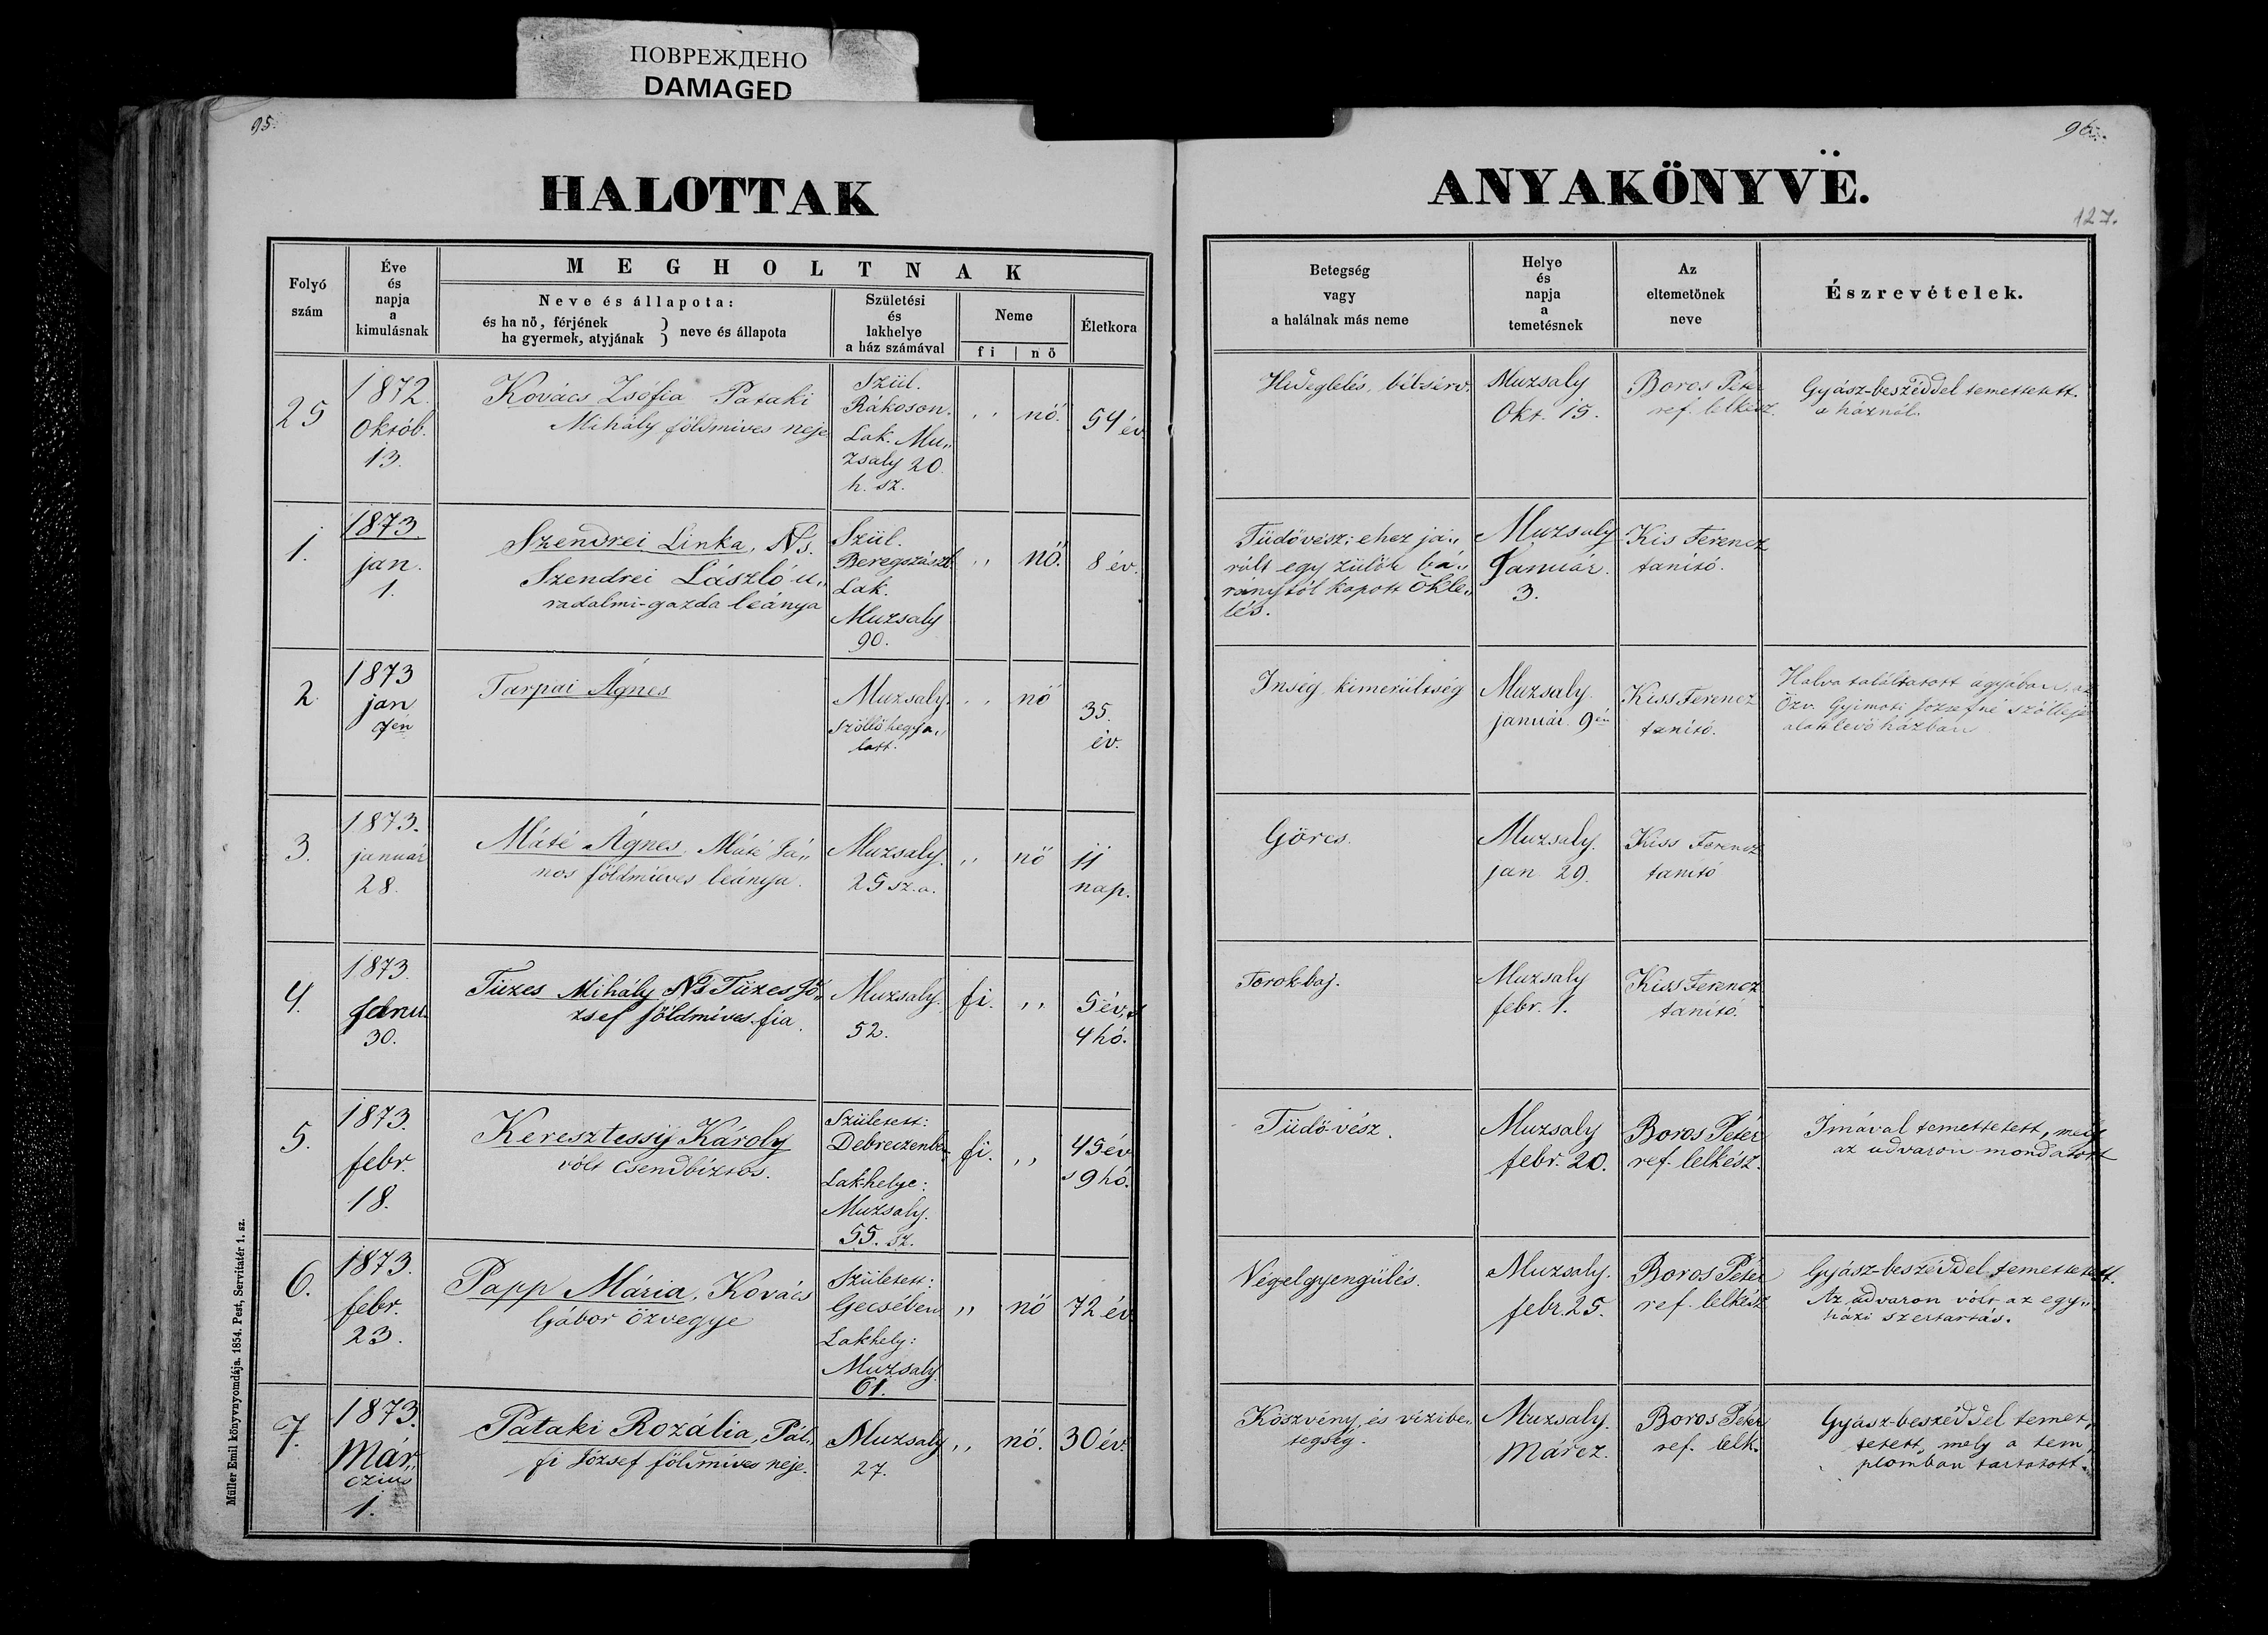 ПОВРЕЖДЕНО
DAMAGED
95.
HALOTTAK
Folyó
szám
Éve
és
napja
a
kimulásnak
MEGHOLTNAK
Neve és állapota:
és ha nő, férjének
ha gyermek, atyjának } neve és állapota
Születési
és
lakhelye
a ház számával
Neme
fi | nö
Életkora
25
1872.
Októb.
13.
Kovács Zsófia Pataki
Mihály földmives neje
Szül.
Rákoson.
Lak. Mu„
zsaly 20.
h. sz.
,,
nő.
54 év
1.
1873.
jan.
1.
Szendrei Linka, Ns.
Szendrei László u„
radalmi-gazda leánya
Szül.
Beregszászb.
Lak.
Muzsaly
90.
,,
nő.
8 év.
2.
1873
jan
7én
Tarpai Ágnes
Muzsaly.
Szöllőhegy a„
latt.
,,
nő
35.
év.
3.
1873.
január
28.
Máté Ágnes, Máté Já„
nos földmüves leánya.
Muzsaly.
25 sz. a.
,,
nő
11
nap.
4.
1873.
Janu.
30.
Tüzes Mihály Ns Tüzes Jó„
zsef földmíves fia.
Muzsaly.
52.
fi.
,,
5 év, s
4 hó.
5.
1873.
febr.
18.
Keresztessij Károly
vólt Csendbíztos.
Született:
Debreczenben
Lakhelye:
Muzsaly.
55. sz.
fi.
,,
45 év
s 9 hó.
6.
1873.
febr.
23.
Papp Mária, Kovács
Gábor özvegye
Született:
Gecsében
Lakhely:
Muzsaly.
61.
,,
nő
72 év
7.
1873.
Már„
czius
1.
Pataki Rozália, Pál„
fi József földmíves neje.
Muzsaly
27.
,,
nő.
30 év.
Müller Emil könyvnyomdája. 1854. Pest, Servitatér 1. sz.
96.
ANYAKÖNYVE.
127.
Betegség
vagy
a halálnak más neme
Helye
és
napja
a
temetésnek
Az
eltemetőnek
neve
Észrevételek.
Hideglelés,
Muzsaly
Okt. 15.
Boros Péter
ref. lelkész.
Gyász-beszéddel temettetett.
a háznál.
Tüdővész; ehez já„
rúlt egy szülők bá„
ránytól kapott ökle„
lés.
Muzsaly
Január.
3.
Kis Ferencz
tanító.
Inség, kimerültség
Muzsaly.
január 9én
Kiss Ferencz
tanító.
Halva találtatott ágyában, az
Özv. Gyimoti Józsefné szőlleje
alatt levő házban
Görcs.
Muzsaly.
jan 29.
Kiss Ferencz
tanító
Torok-baj.
Muzsaly
febr. 1.
Kiss Ferencz
tanító.
Tüdő-vész.
Muzsaly
febr. 20.
Boros Péter
ref. lelkész.
Imával temettetett, mely
az udvaron mondatott
Végelgyengülés.
Muzsaly.
febr. 25.
Boros Péter
ref. lelkész
Gyász-beszéddel temettetett.
Az udvaron vólt az egy„
házi szertartás.
Köszvény, és vízibe„
tegség.
Muzsaly.
Márcz.
Boros Péter
ref. lelk.
Gyász-beszéddel temet„
tetett, mely a tem„
plomban tartatott